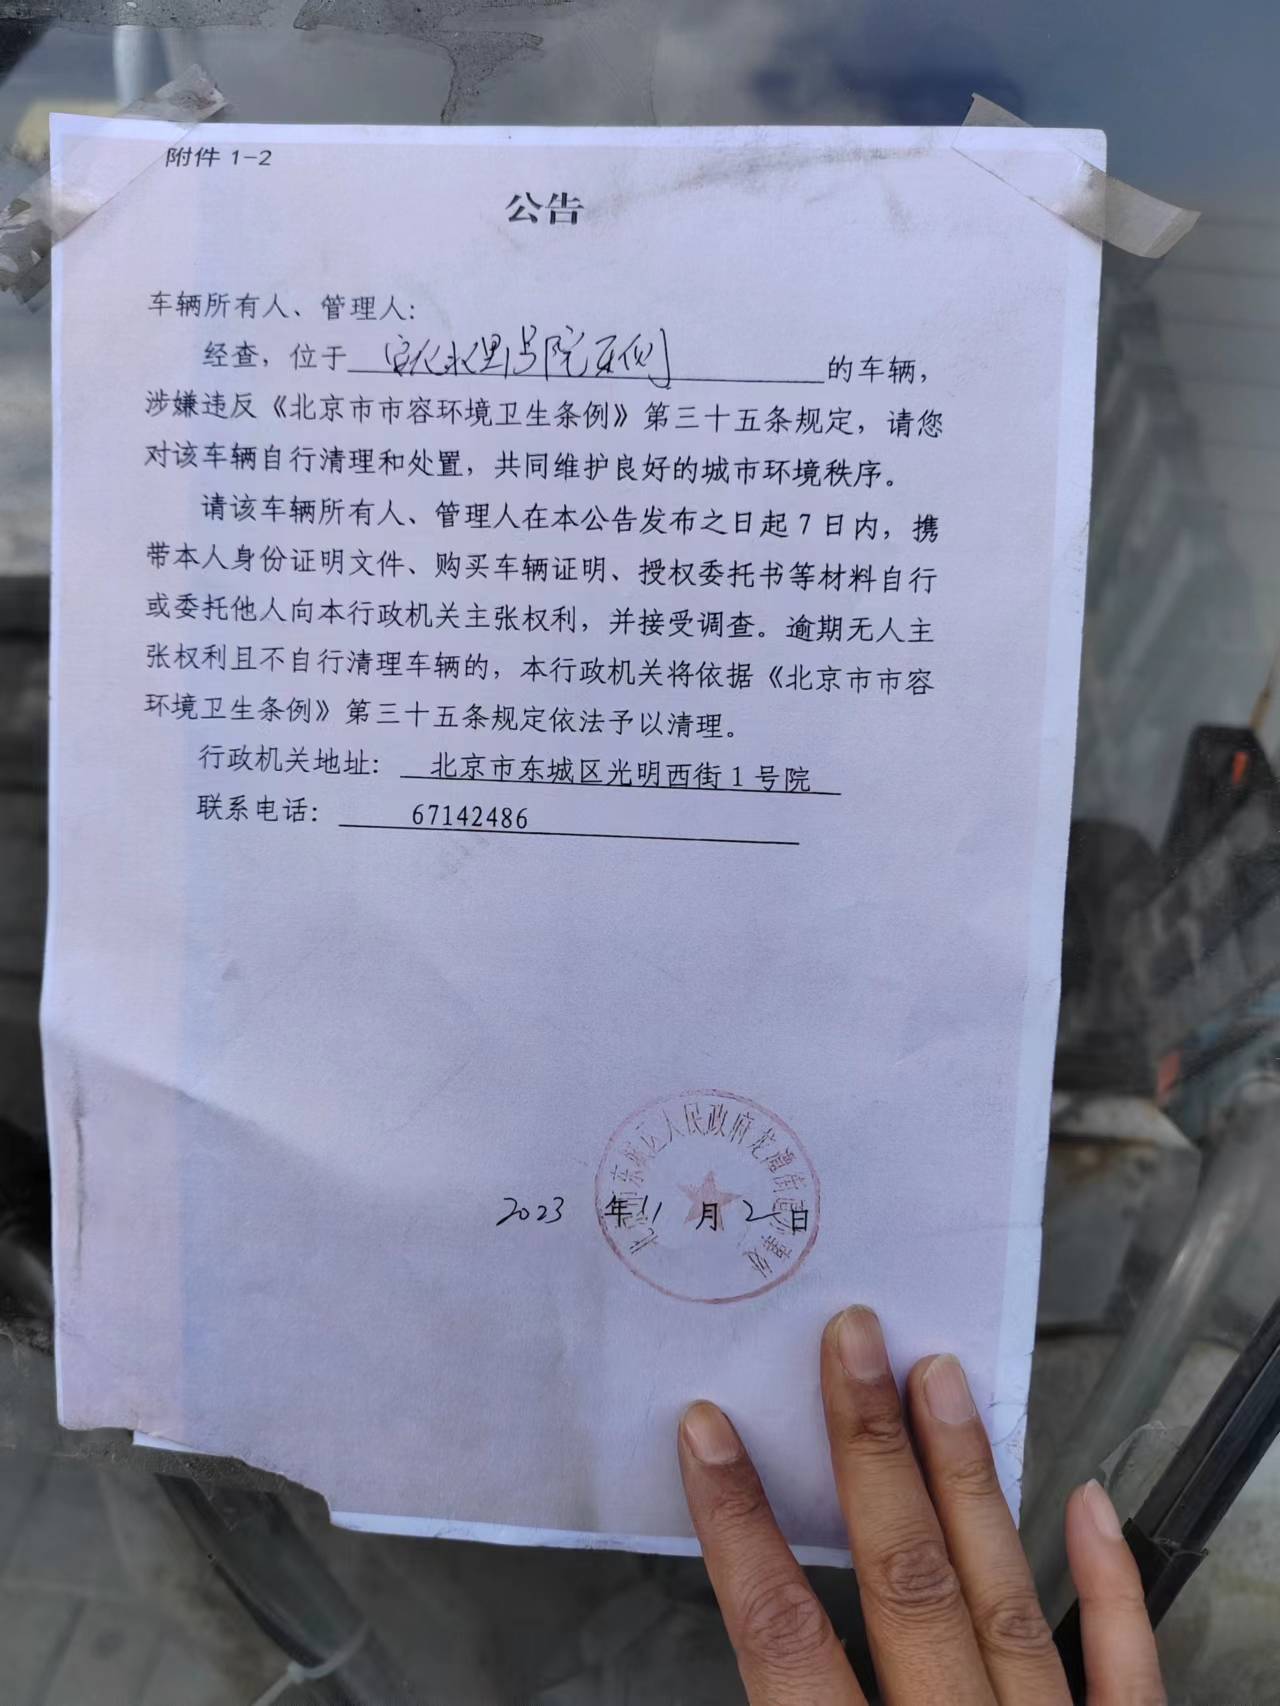 附件 1-2
公告
车辆所有人、管理人：
经查，位于 里1号院 的车辆，
涉嫌违反《北京市市容环境卫生条例》第三十五条规定，请您
对该车辆自行清理和处置，共同维护良好的城市环境秩序。
请该车辆所有人、管理人在本公告发布之日起7日内，携
带本人身份证明文件、购买车辆证明、授权委托书等材料自行
或委托他人向本行政机关主张权利，并接受调查。逾期无人主
张权利且不自行清理车辆的，本行政机关将依据《北京市市容
环境卫生条例》第三十五条规定依法予以清理。
行政机关地址：北京市东城区光明西街1号院
联系电话：67142486
北京市东城区人民政府龙潭街道办事处
2023 年 11 月 2 日